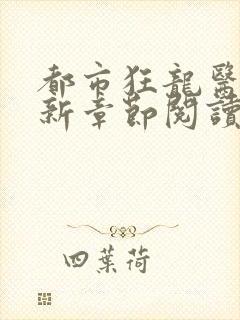 都市狂龍醫
新章節閱讀
四葉荷